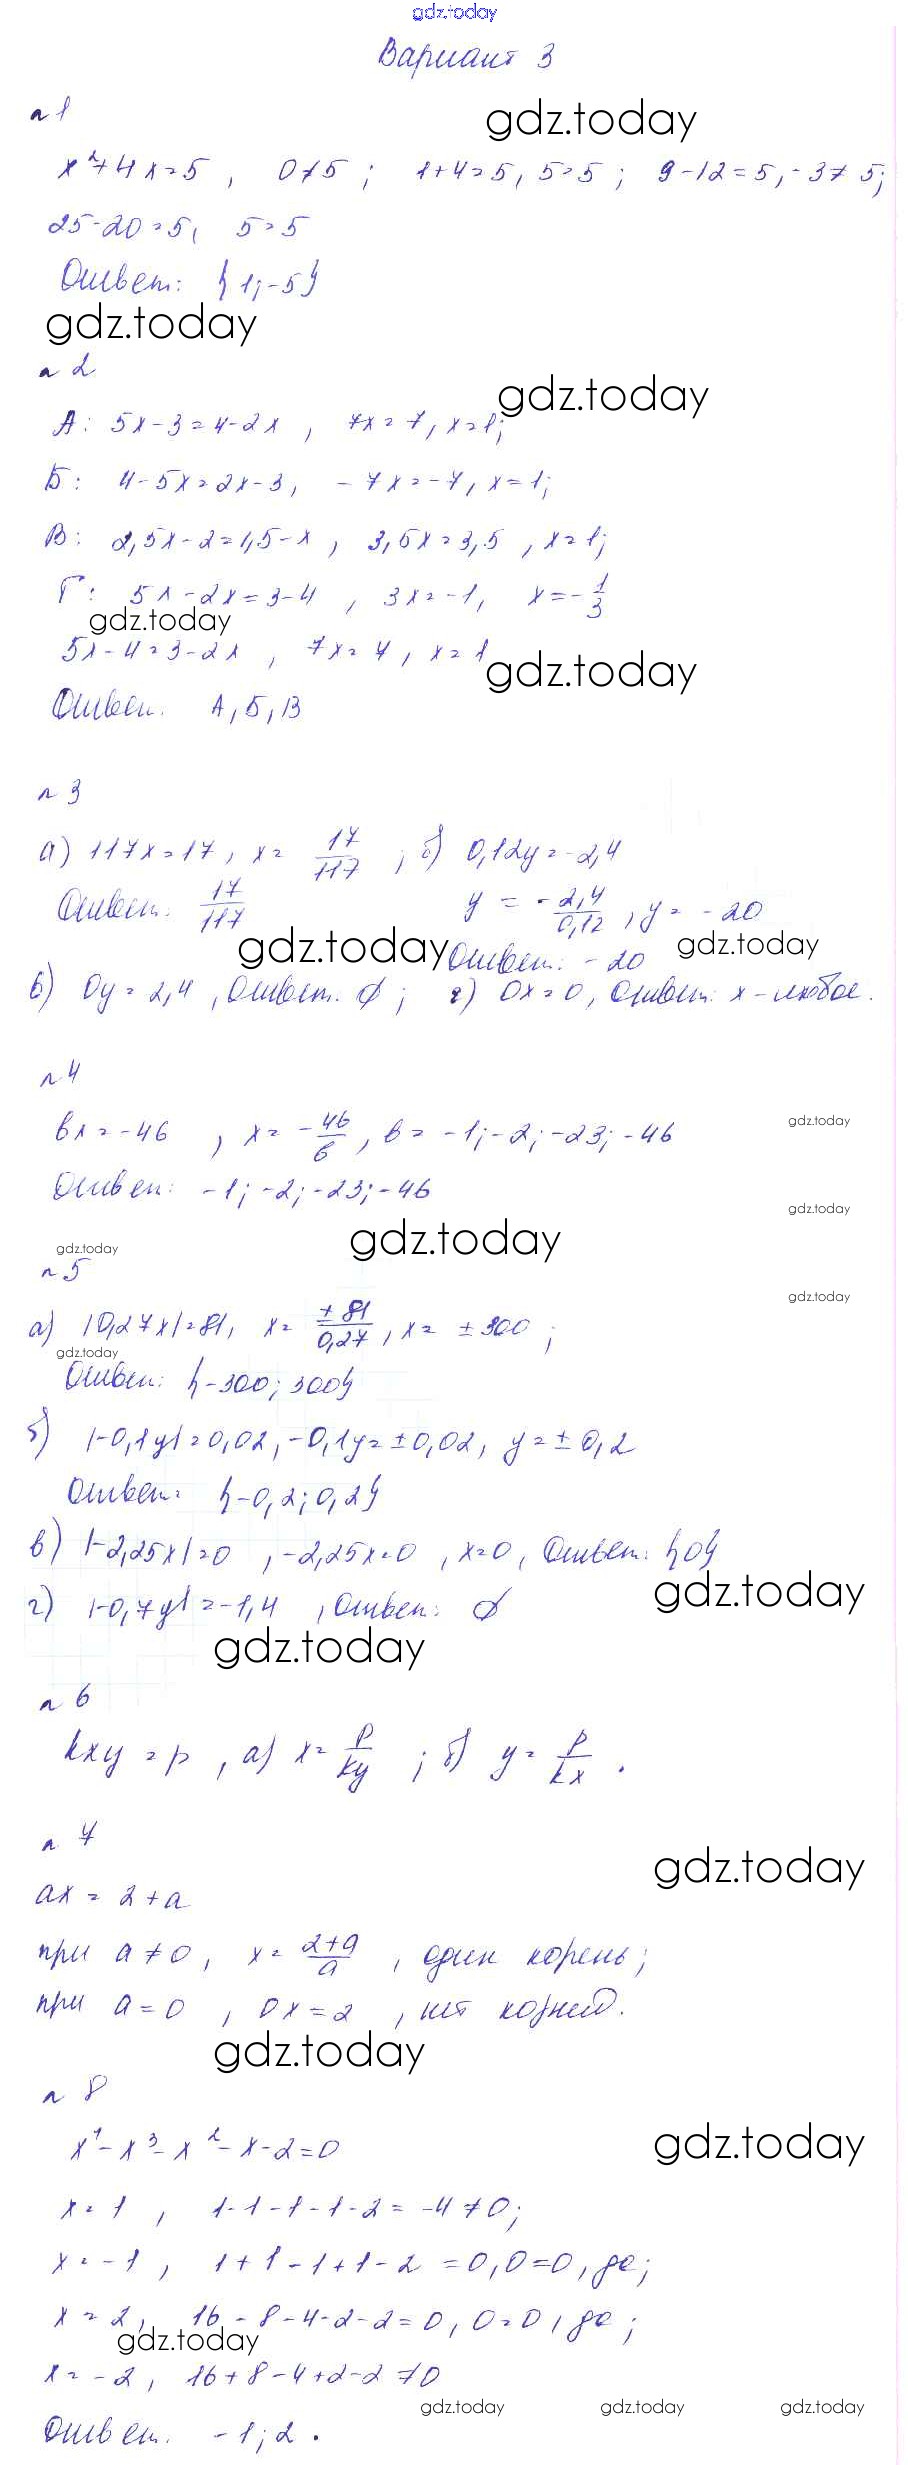 gdz.today
Вариант 3
n 1
gdz.today
x²+4x=5, 0≠5; 1+4=5, 5=5; 9-12=5, -3≠5;
25-20=5, 5=5
Ответ: {1;-5}
gdz.today
n 2
gdz.today
А: 5x-3=4-2x, 7x=7, x=1;
Б: 4-5x=2x-3, -7x=-7, x=1;
В: 2,5x-2=1,5-x, 3,5x=3,5, x=1;
Г: 5x-2x=3-4, 3x=-1, x=-1/3
gdz.today
5x-4=3-2x, 7x=7, x=1
gdz.today
Ответ: А, Б, В
n 3
а) 117x=17, x=17/117; б) 0,12y=-2,4
Ответ: 17/117 y=-2,4/0,12, y=-20
gdz.today gdz.today
Ответ: -20
в) 0y=2,4, Ответ: ∅; г) 0x=0, Ответ: x-любое.
n 4
вx=-46, x=-46/в, в=-1;-2;-23;-46
gdz.today
Ответ: -1;-2;-23;-46
gdz.today
gdz.today
gdz.today
n 5
gdz.today
а) |0,27x|=81, x=±81/0,27, x=±300;
gdz.today
Ответ: {-300; 300}
б) |-0,1y|=0,02, -0,1y=±0,02, y=±0,2
Ответ: {-0,2; 0,2}
в) |-2,25x|=0, -2,25x=0, x=0, Ответ: {0}
gdz.today
г) |-0,7y|=-1,4, Ответ: ∅
gdz.today
n 6
kxy=p, а) x=p/ky; б) y=p/kx.
n 7
gdz.today
ax=2+a
при a≠0, x=2+a/a, один корень;
при a=0, 0x=2, нет корней.
gdz.today
n 8
x⁴-x³-x²-x-2=0
gdz.today
x=1, 1-1-1-1-2=-4≠0;
x=-1, 1+1-1+1-2=0, 0=0, да;
x=2, 16-8-4-2-2=0, 0=0, да;
gdz.today
x=-2, 16+8-4+2-2≠0
gdz.today gdz.today gdz.today
Ответ: -1; 2.